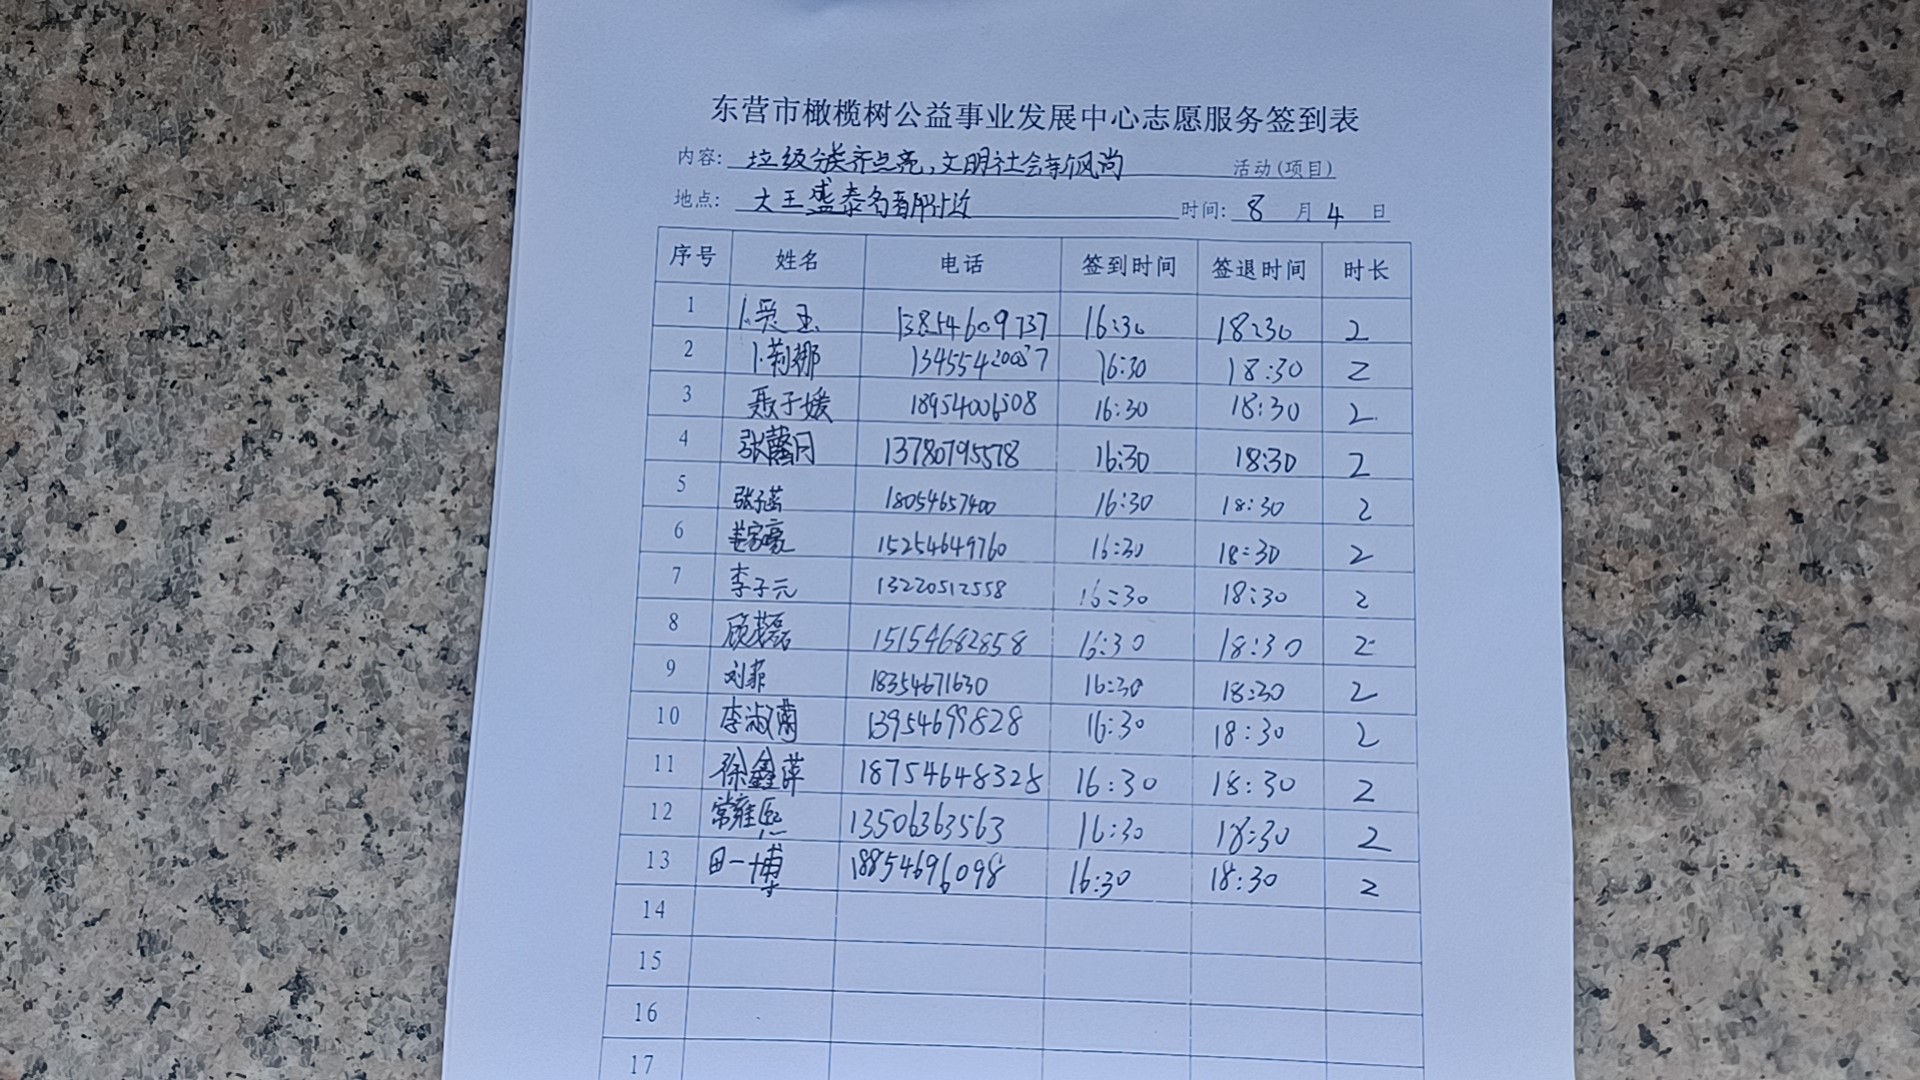 东营市橄榄树公益事业发展中心志愿服务签到表
内容: 垃圾分类齐点亮,文明社会新风尚 活动(项目)
地点: 大王盛泰名都附近 时间: 8 月 4 日
序号 姓名 电话 签到时间 签退时间 时长
1 13854609737 16:30 18:30 2
2 16:30 18:30 2
3 聂子媛 18954006508 16:30 18:30 2
4 张馨月 13780795578 16:30 18:30 2
5 18054657400 16:30 18:30 2
6 姜家豪 15254649760 16:30 18:30 2
7 李子元 13220512558 16:30 18:30 2
8 15154682858 16:30 18:30 2
9 刘菲 18354671630 16:30 18:30 2
10 李淑菊 13954699828 16:30 18:30 2
11 徐鑫萍 18754648328 16:30 18:30 2
12 常雍熙 13506363563 16:30 18:30 2
13 田一博 18854696098 16:30 18:30 2
14
15
16
17